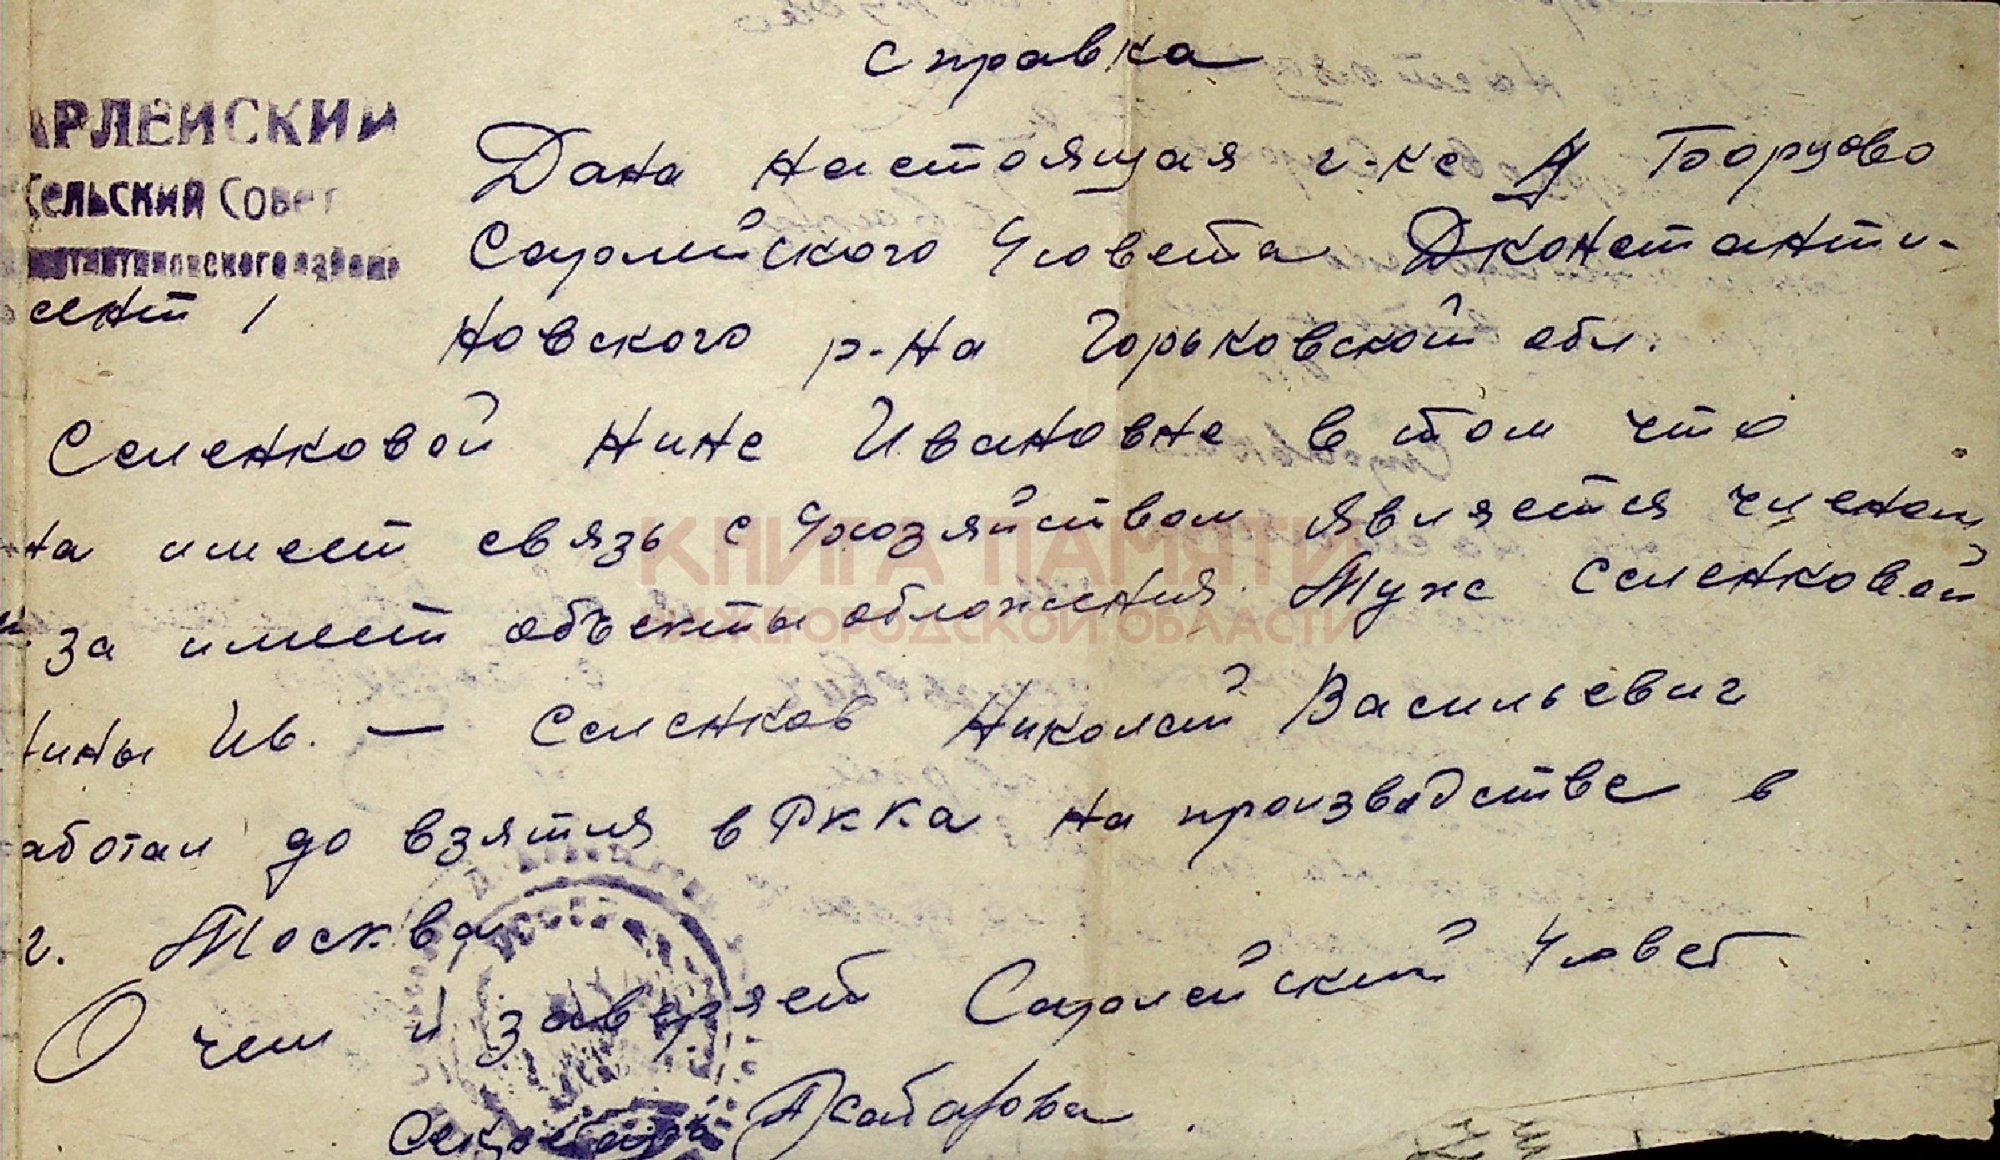 Справка
АРЛЕЙСКИЙ
Сельский Совет
Дана настоящая г-ке д Борцово
Сарлейского с/совета Дконстанти-
сент /
новского р-на Горьковской обл.
Селенковой Нине Ивановне в том что
на имеет связь с с/хозяйством является членом
за имеет объекты обложения. Муже Селенковой
ины Ив. — Селенков Николай Васильевич
аботал до взятия в РККА на производстве в
г. Москва
О чем и заверяет Сарлейский с/совет
Секретарь
КНИГА ПАМЯТИ
НИЖГОРОДСКОЙ ОБЛАСТИ